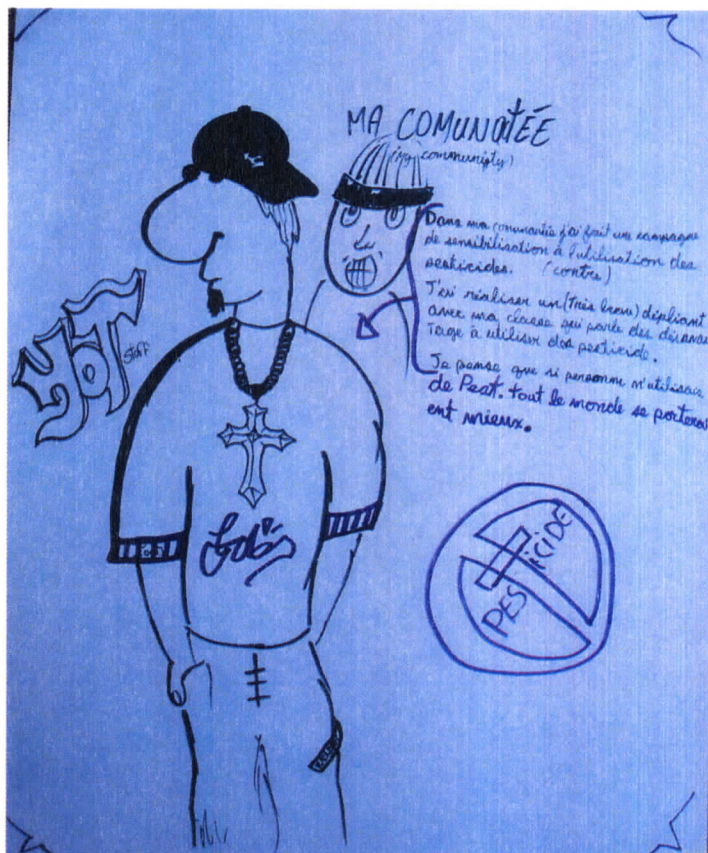 MA COMUNOTÉE
(my communyty)
Dans ma comunautée j'ai fait une campagne
de sensibilisation à l'utilisation des
pesticides. (contre)
J'ai réaliser un (très beau) dépliant
avec ma classe qui parle des désavan
tage à utiliser des pesticide.
Je pense que si personne n'utilisais
de Pest. tout le monde se porterai
ent mieux.
YOT
Stuff
PESTICIDE